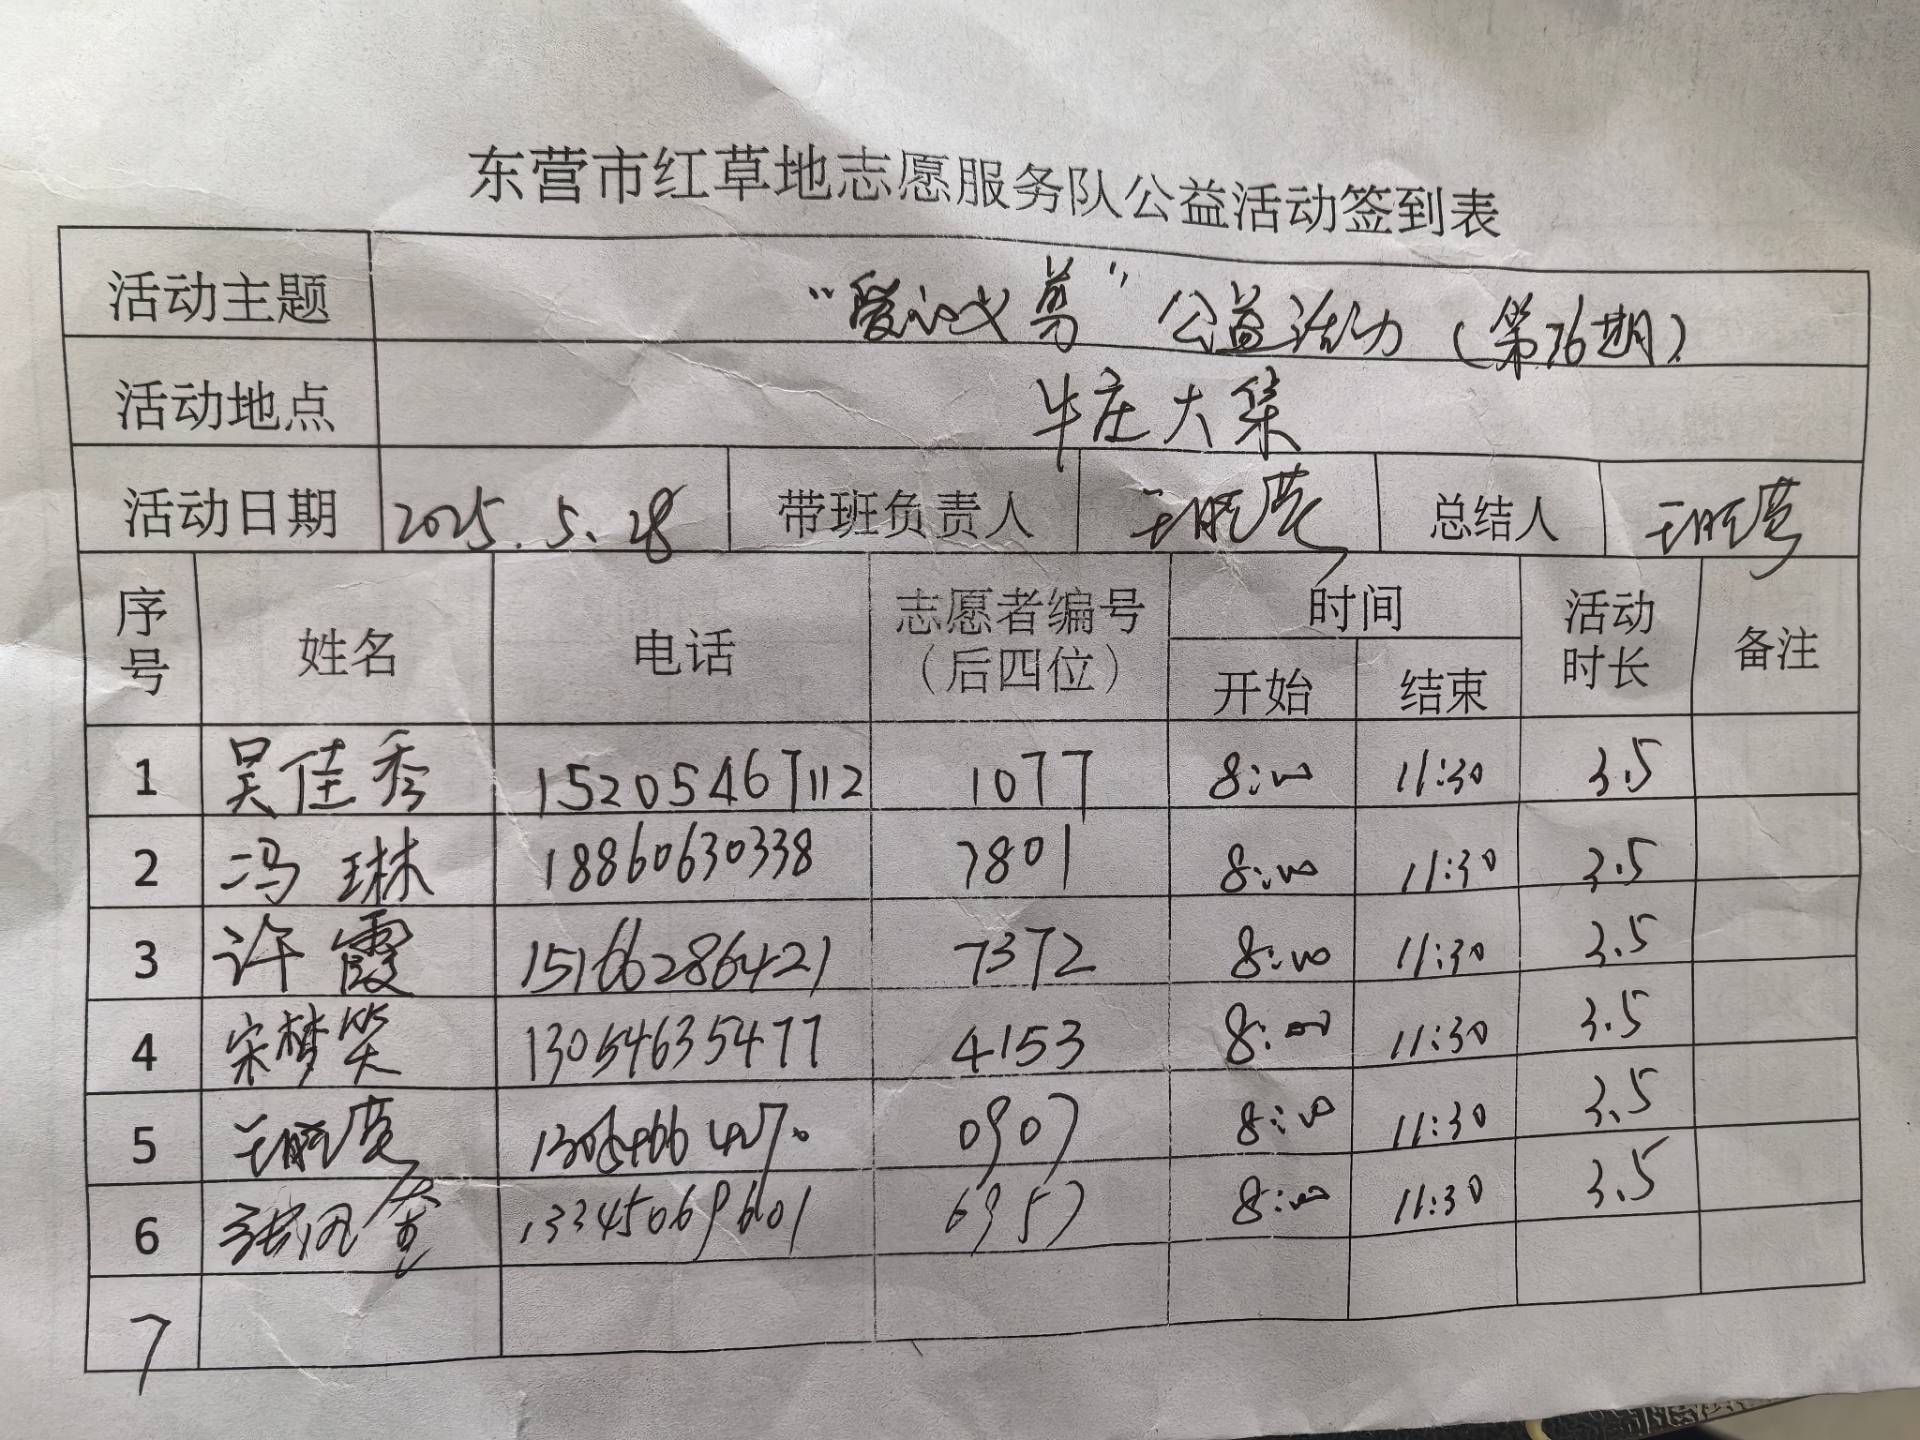 东营市红草地志愿服务队公益活动签到表
活动主题 “爱心义剪”公益活动（第76期）
活动地点 牛庄大集
活动日期 2025.5.28 带班负责人 总结人
序号 姓名 电话 志愿者编号（后四位） 时间 活动时长 备注
开始 结束
1 吴佳秀 15205467112 1077 8:00 11:30 3.5
2 冯琳 18860630338 7801 8:00 11:30 3.5
3 许霞 15166286421 7372 8:00 11:30 3.5
4 宋梦笑 13054635477 4153 8:00 11:30 3.5
5 0907 8:00 11:30 3.5
6 13345069601 6957 8:00 11:30 3.5
7